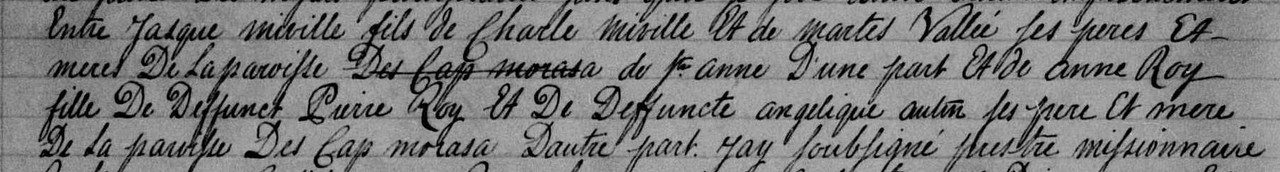 Entre Jasque miville fils de Charle miville Et de martes Vallée ses peres Et
meres De Laparoisse Des Cap morasa de ste anne D'une part Et de anne Roy
fille De Deffunct Pierre Roy Et De Deffuncte angelique autin ses pere Et mere
De La paroisse Des Cap morasa Dautre part. Jay soubsigné prestre missionnaire